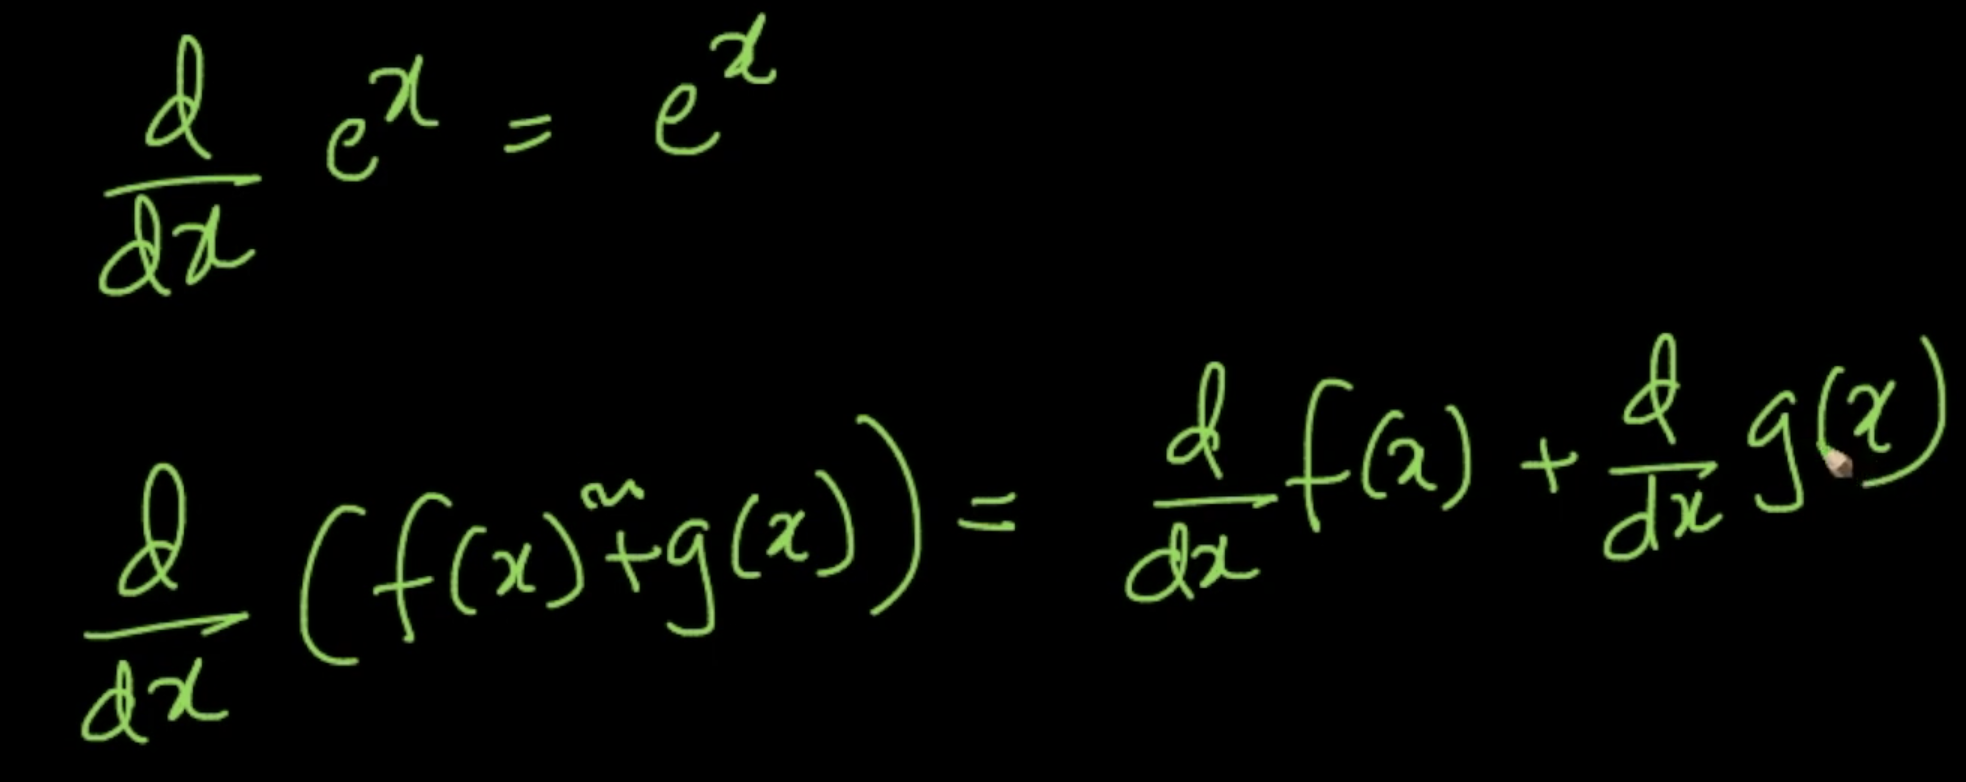 d/dx e^x = e^x
d/dx (f(x) + g(x)) = d/dx f(x) + d/dx g(x)